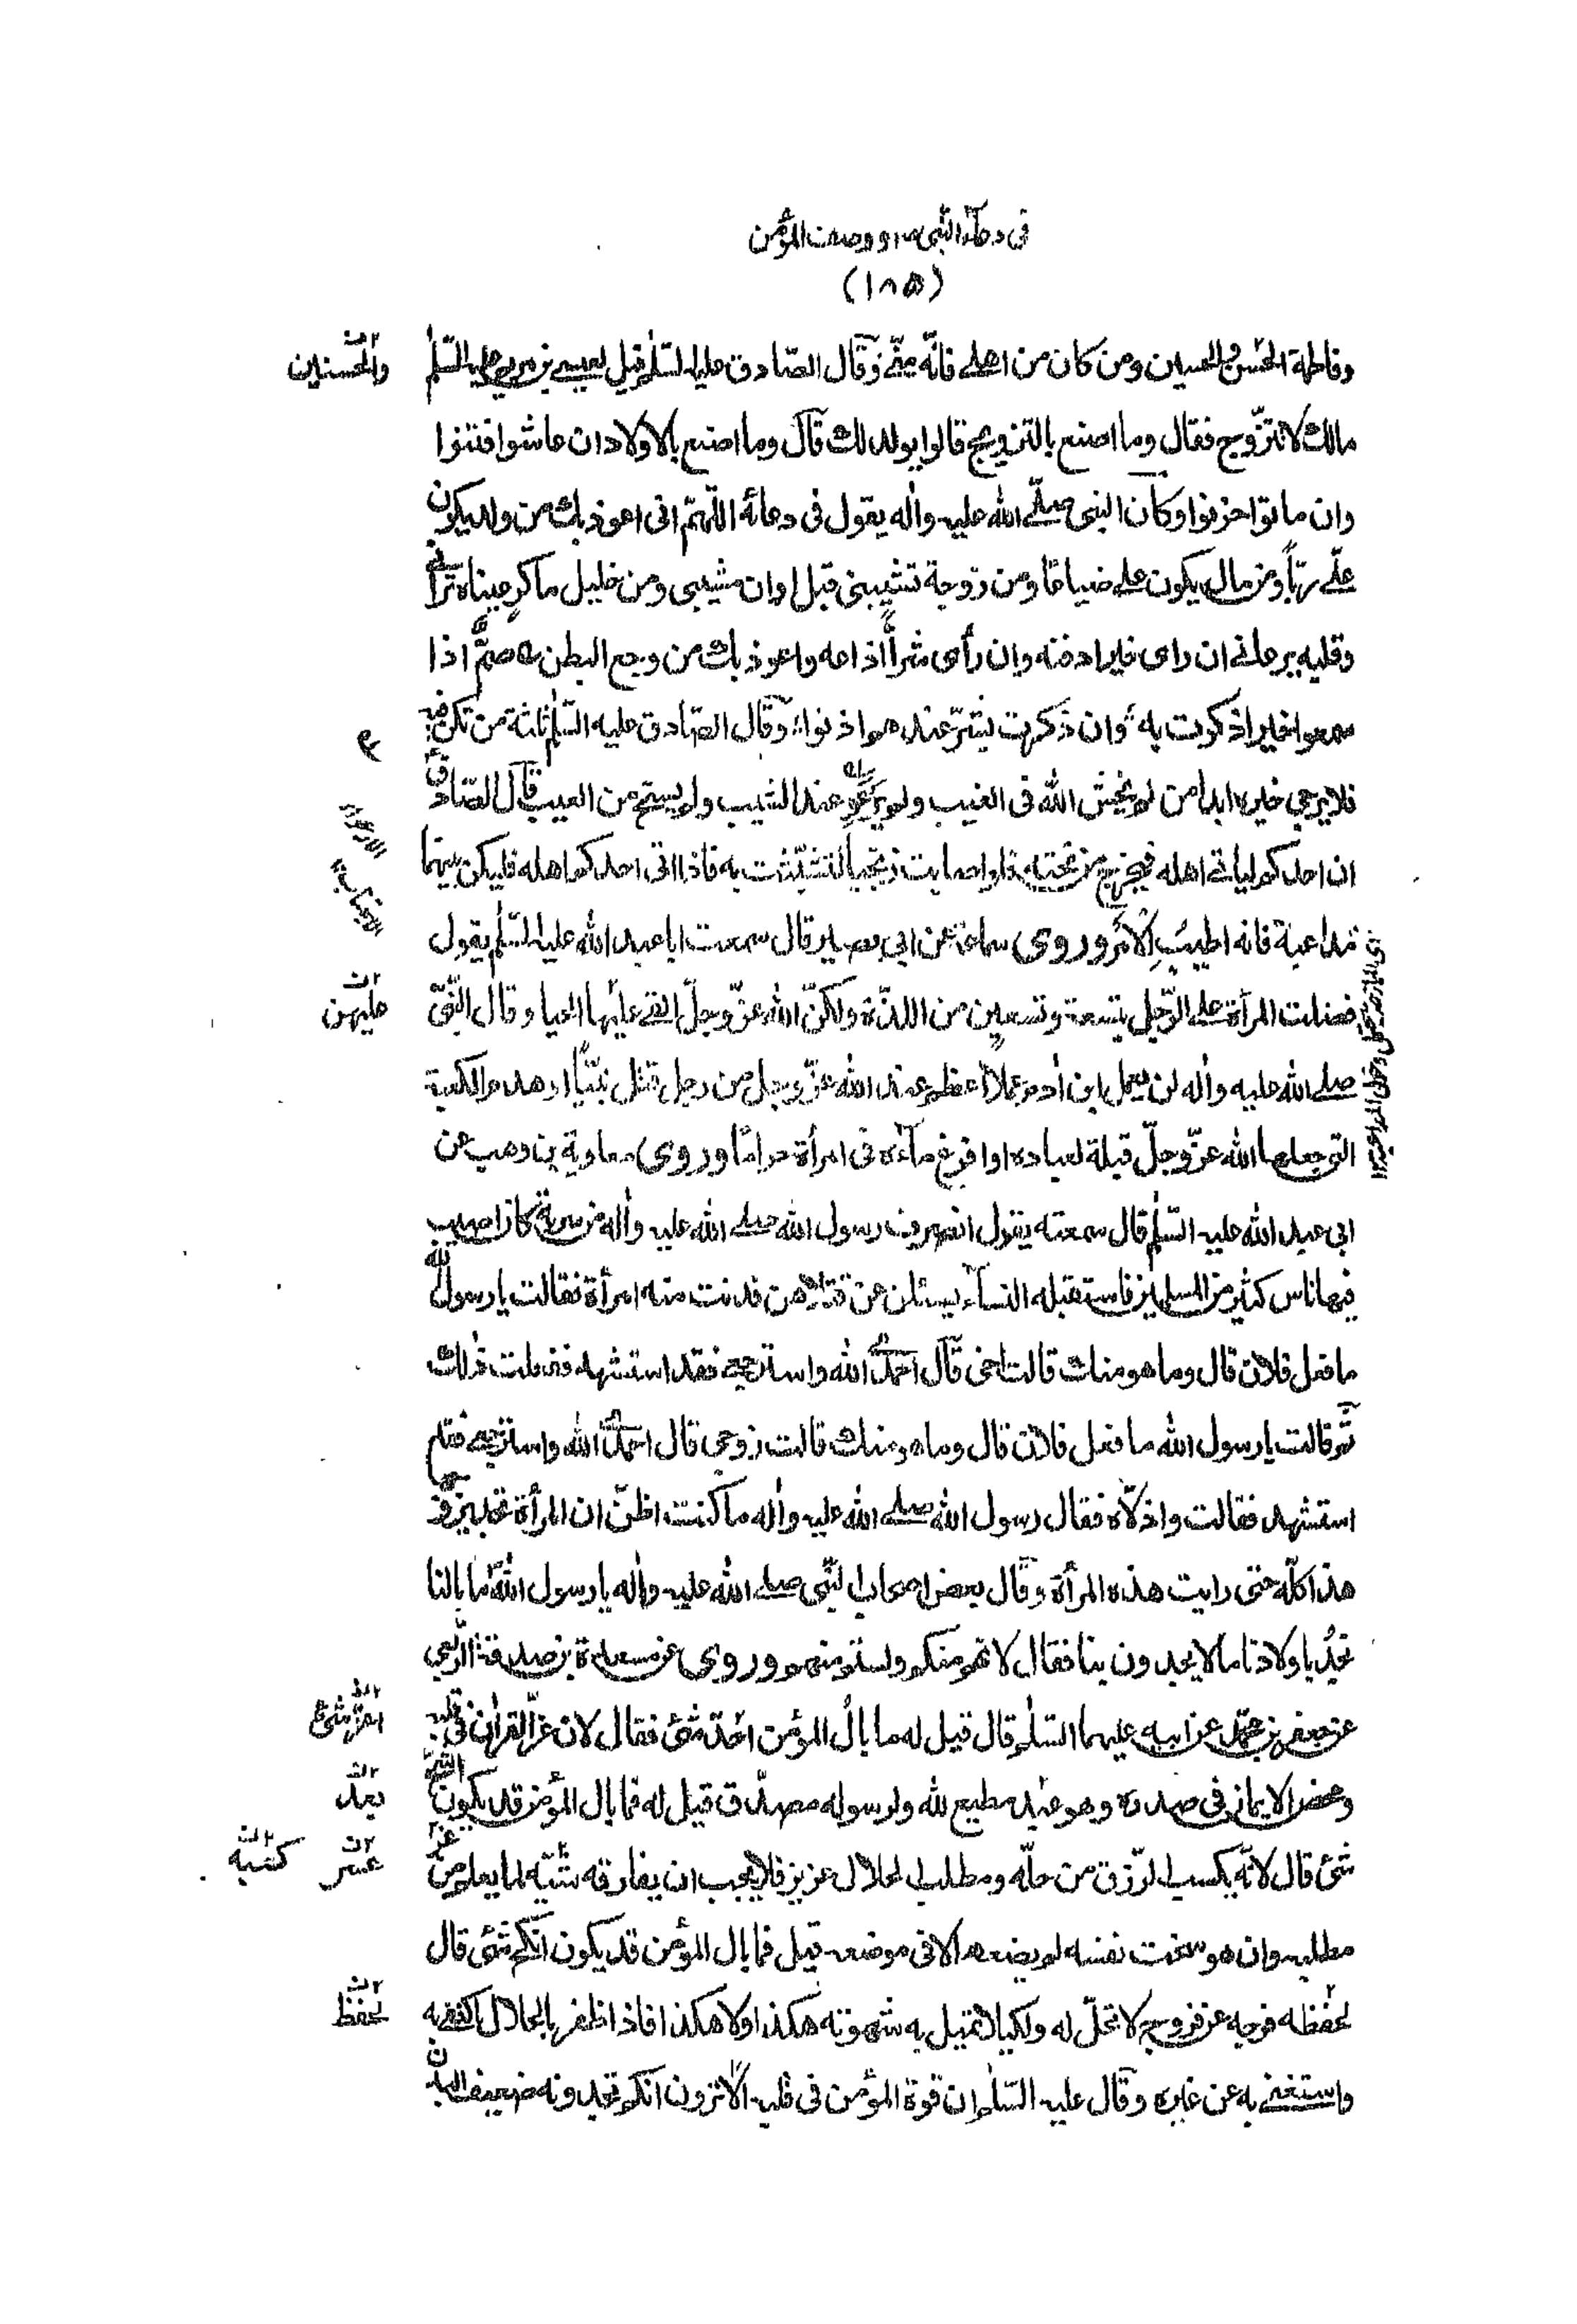 فی دعاء النبی ص و وصف المؤمن
(١٨۵)
وفاطمة الحسن والحسین ومن کان من اهلی فانّه منّی وقال الصّادق علیه السّلم قیل لعیسی بن مریم علیه السّلم
والحسنین
مالک لا تتزّوج فقال وما اصنع بالتزویج قالوا یولد لک قال وما اصنع بالاولاد ان عاشوا فتنوا
وان ماتوا احزنوا وکان النبی صلّی الله علیه واٰله یقول فی دعائه اللّهمّ انی اعوذ بک من ولد یکون
علّی ربّاً ومن مال یکون علی ضیاعا ومن زوجة تشیّبنی قبل اوان مشیبی ومن خلیل ماکر عیناه ترانی
وقلبه یرعانی ان رای خیرا دفنه وان رأی شراً اذاعه واعوذ بک من وجع البطن صمٌّ اذا
سمعوا خیرا ذکرت به وان ذکرت بشرّ عندهم اذنوا وقال الصّادق علیه السّلم ثلثة من تکن فیه
فلا یرجی خیره ابدا من لم یخش الله فی الغیب ولم یرعو عند الشیب ولم یستح من العیب قال الصّادق
ع
ان احدکم لیاتی اهله فیخرج من تحته فلو اصابت زنجیا لتشبّثت به فاذا اتی احدکم اهله فلیکن بینهما
مداعبة فانه اطیب للامر وروی سماعة عن ابی بصیر قال سمعت ابا عبد الله علیه السّلم یقول
فضلت المرأة علی الرّجل بتسعة وتسعین من اللذّة ولکنّ الله عزّ وجلّ القی علیها الحیا وقال النّبیّ
علیهن
صلی الله علیه واٰله لن یعمل ابن اٰدم عملاً اعظم عند الله عزّ وجل من رجل قتل نبیّاً او هدم الکعبة
التی جعلها الله عزّ وجلّ قبلة لعباده او افرغ ماءه فی امرأة حراما وروی معاویة بن وهب عن
ابی عبد الله علیه السّلم قال سمعته یقول انصرف رسول الله صلی الله علیه واٰله من سریة کان اصیب
فیها ناس کثیر من المسلمین فاستقبله النساء یسئلن عن قتلاهن فدنت منه امرأة فقالت یا رسول الله
ما فعل فلان قال وما هو منک قالت اخی قال احمدی الله واسترجعی فقد استشهد ففعلت ذلک
ثم قالت یا رسول الله ما فعل فلان قال وما هو منک قالت زوجی قال احمدی الله واسترجعی فقد
استشهد فقالت واذلّاه فقال رسول الله صلی الله علیه واٰله ما کنت اظنّ ان المرأة تجد بزوجها
هذا کلّه حتی رایت هذه المرأة وقال بعض اصحاب النّبی صلی الله علیه واٰله یا رسول الله ما بالنا
نجد باولادنا ما لا یجدون بنا فقال لانهم منکم ولستم منهم وروی عن مسعدة بن صدقة الرّبعی
عن جعفر بن محمّد عن ابیه علیهما السّلم قال قیل له ما بال المؤمن احدّ شئ فقال لان عزّ القراٰن فی قلبه
احدّ شئ
ومحض الایمان فی صدره وهو عبد مطیع لله ولرسوله مصدّق قیل له فما بال المؤمن قد یکون اشحّ
یعد
شئ قال لانّه یکسب الرّزق من حلّه ومطلب الحلال عزیز فلا یحب ان یفارقه شیّه لما یعلم من عز
عسر
کسبه
مطلبه وان هو سخت نفسه لم یضعه الا فی موضعه قیل فما بال المؤمن قد یکون انکح شئ قال
لحفظه فرجه عن فروج لا تحلّ له ولکیلا تمیل به شهوته هکذا ولا هکذا فاذا ظفر بالحلال اکتفی به
لحفظ
واستغنی به عن غیره وقال علیه السّلم ان قوة المؤمن فی قلبه الا ترون انکم تجدونه ضعیف البدن